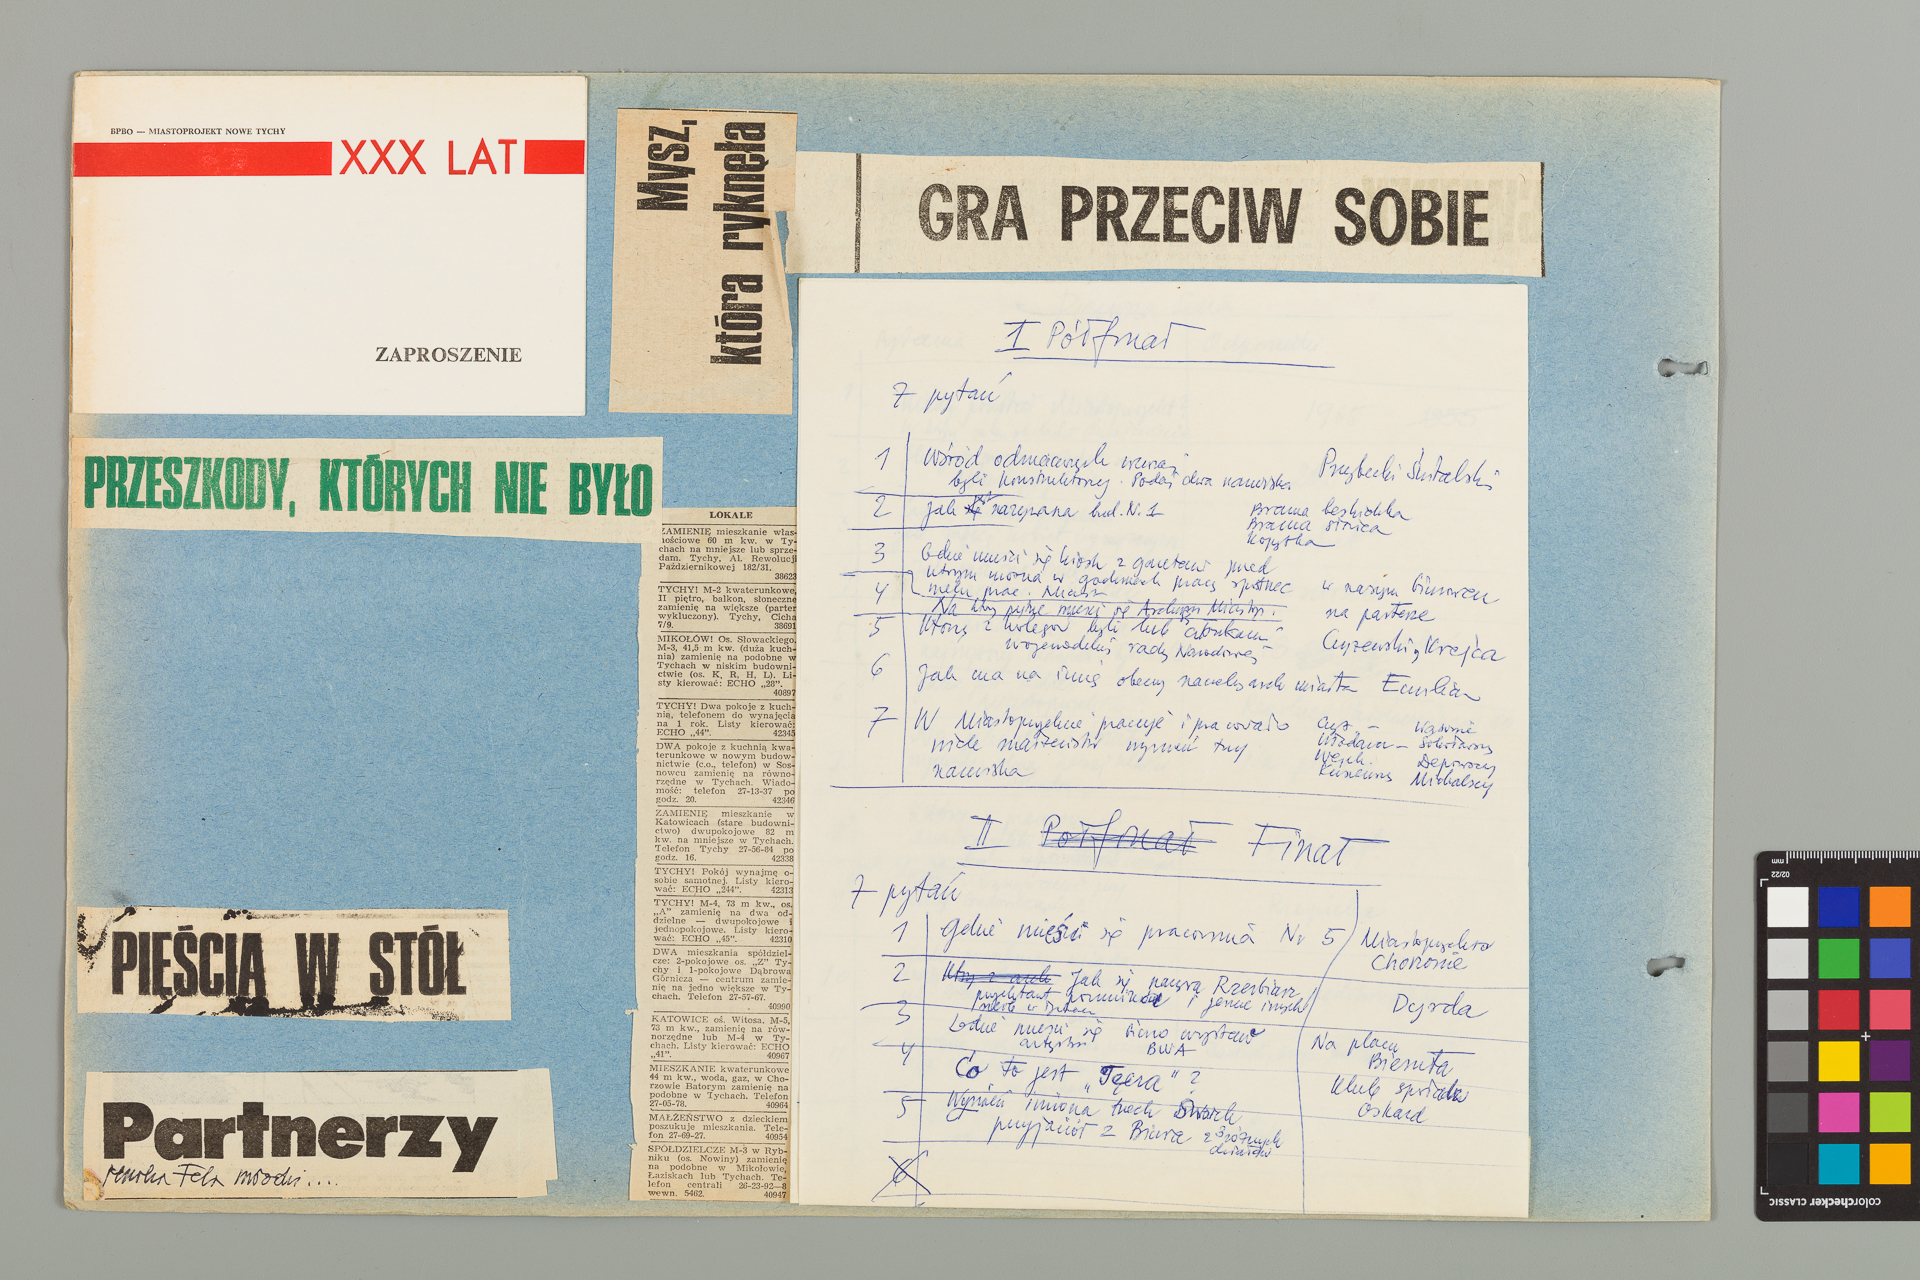 BPBO — MIASTOPROJEKT NOWE TYCHY
XXX LAT
ZAPROSZENIE
Mysz,
która ryknęła
GRA PRZECIW SOBIE
PRZESZKODY, KTÓRYCH NIE BYŁO
PIĘŚCIĄ W STÓŁ
Partnerzy
LOKALE
ZAMIENIĘ mieszkanie włas-
nościowe 60 m kw. w Ty-
chach na mniejsze lub sprze-
dam. Tychy, Al. Rewolucji
Październikowej 182/31.
38623
TYCHY! M-2 kwaterunkowe,
II piętro, balkon, słoneczne
zamienię na większe (parter
wykluczony). Tychy, Cicha
7/9. 38691
MIKOŁÓW! Os. Słowackiego.
M-3, 41,5 m kw. (duża kuch-
nia) zamienię na podobne w
Tychach w niskim budowni-
ctwie (os. K, R, H, L). Li-
sty kierować: ECHO „28".
40897
TYCHY! Dwa pokoje z kuch-
nią, telefonem do wynajęcia
na 1 rok. Listy kierować:
ECHO „44". 42345
DWA pokoje z kuchnią kwa-
terunkowe w nowym budow-
nictwie (c.o., telefon) w Sos-
nowcu zamienię na równo-
rzędne w Tychach. Wiado-
mość: telefon 27-13-37 po
godz. 20. 42346
ZAMIENIĘ mieszkanie w
Katowicach (stare budowni-
ctwo) dwupokojowe 82 m
kw. na mniejsze w Tychach.
Telefon Tychy 27-56-84 po
godz. 16. 42338
TYCHY! Pokój wynajmę o-
sobie samotnej. Listy kiero-
wać: ECHO „244". 42313
TYCHY! M-4, 73 m kw., os.
„A" zamienię na dwa od-
dzielne — dwupokojowe i
jednopokojowe. Listy kiero-
wać: ECHO „45". 42310
DWA mieszkania spółdziel-
cze: 2-pokojowe os. „Z" Ty-
chy i 1-pokojowe Dąbrowa
Górnicza — centrum zamie-
nię na jedno większe w Ty-
chach. Telefon 27-57-67.
40990
KATOWICE oś. Witosa. M-5,
73 m kw., zamienię na rów-
norzędne lub M-4 w Ty-
chach. Listy kierować: ECHO
„41". 40967
MIESZKANIE kwaterunkowe
44 m kw., woda, gaz, w Cho-
rzowie Batorym zamienię na
podobne w Tychach. Telefon
27-05-78. 40964
MAŁŻEŃSTWO z dzieckiem
poszukuje mieszkania. Tele-
fon 27-69-27. 40954
SPÓŁDZIELCZE M-3 w Ryb-
niku (os. Nowiny) zamienię
na podobne w Mikołowie,
Łaziskach lub Tychach. Te-
lefon centrali 26-23-92—8
wewn. 5462. 40947
I Półfinał
7 pytań
1 Wśród odznaczonych wczoraj
byli konstruktorzy. Podaj dwa nazwiska
2 Jak jest nazywana bud. N. 1
Brama
Brama
3 Gdzie mieści się kiosk z gazetami przed
którym można w godzinach pracy spotkać
w naszym biurowcu
4 Na którym piętrze mieści się Archiwum Miastop.
na parterze
5 Którzy z kolegów byli lub członkami
wojewódzkiej rady Narodowej
Czyżewski, Krejca
6 Jak ma na imię obecny naczelnik miasta Emilian
7 W Miastoprojekcie pracuje i pracowało
wiele małżeństw wymień trzy
nazwiska
II Półfinał Finał
7 pytań
1 Gdzie mieści się pracownia Nr 5
Miastoprojekt
Chorzowie
2 Jak się nazywa Rzeźbiarz
projektant pomników i jeszcze innych
Dyrda
3 Gdzie mieści się biuro wystaw
artyst. BWA
Na placu
Bieruta
4 Co to jest „Tęcza" ?
Klub
Oskard
5 Wymień imiona trzech
przyjaciół z Biura z różnych
działów
6
mm
02/22
colorchecker CLASSIC